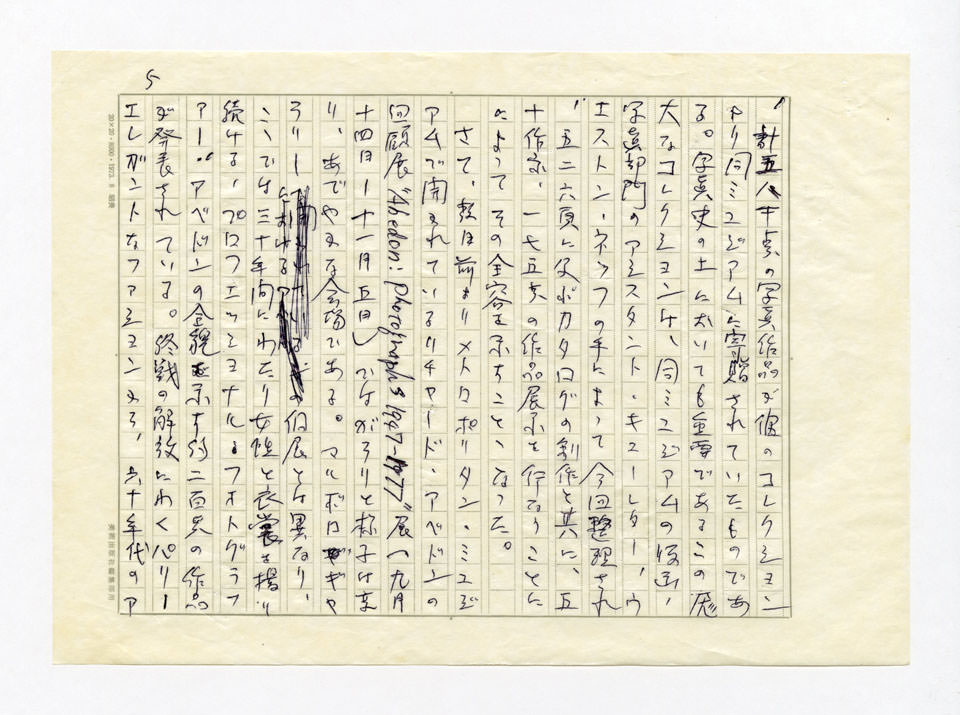 5
計五八十点の写真作品が個のコレクション
より同ミュジアムに寄贈されていたものであ
る。写真史の上に於いても重要であるこの厖
大なコレクションは、同ミュジアムの版画、
写真部門のアシスタント・キューレター、ウ
エストン・ネフの手によって今回整理され
、五二六頁に及ぶカタログの制作と共に、五
十作家、一七五点の作品展示を行なうことに
よってその全容を示すことゝなった。
さて、数日前よりメトロポリタン・ミュジ
アムで開かれているリチャード・アベドンの
回顧展"Abedon: Photographs 1947-1977"展(九月
十四日ー十一月五日)はがらりと様子は変
り、あでやかな会場である。マルボロギャ
ラリーの個展とは異なり、
こゝでは三十年間にわたり女性と衣裳を撮り
続ける、プロフェッショナル・フォトグラフ
ァー・アベドンの全貌を示す約二百点の作品
が発表されている。終戦の解放にわくパリー
エレガントなファションから、六十年代のア
20×20・1973. 8
美術出版社編集部用